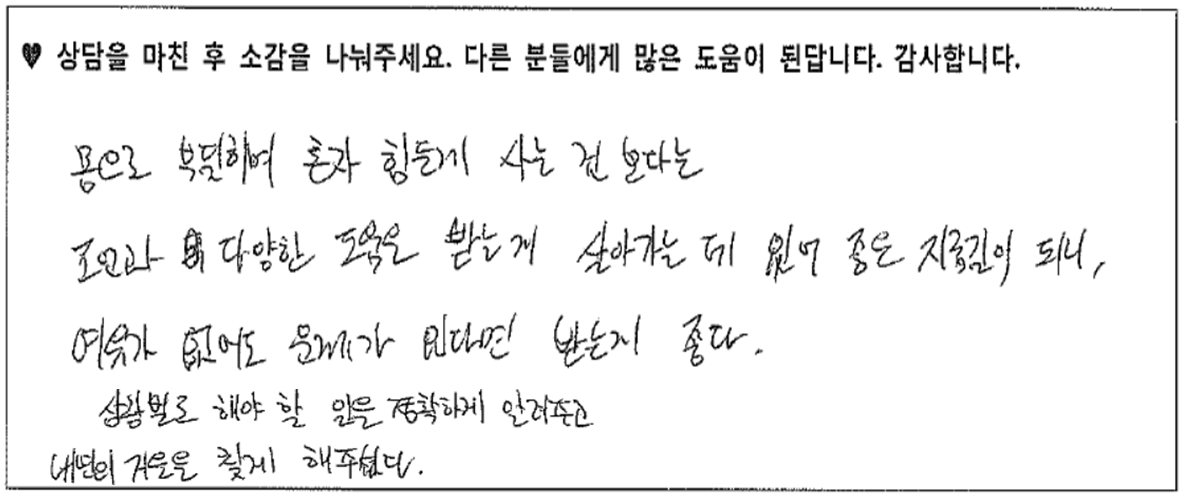 ♥ 상담을 마친 후 소감을 나눠주세요. 다른 분들에게 많은 도움이 된답니다. 감사합니다.
몸으로 부딪히며 혼자 힘들게 사는 것 보다는
조언과 다양한 도움을 받는게 살아가는 데 있어 좋은 지름길이 되니,
여유가 없어도 문제가 있다면 받는게 좋다.
상황별로 해야 할 일을 정확하게 알려주고
내면의 거울을 찾게 해주셨다.